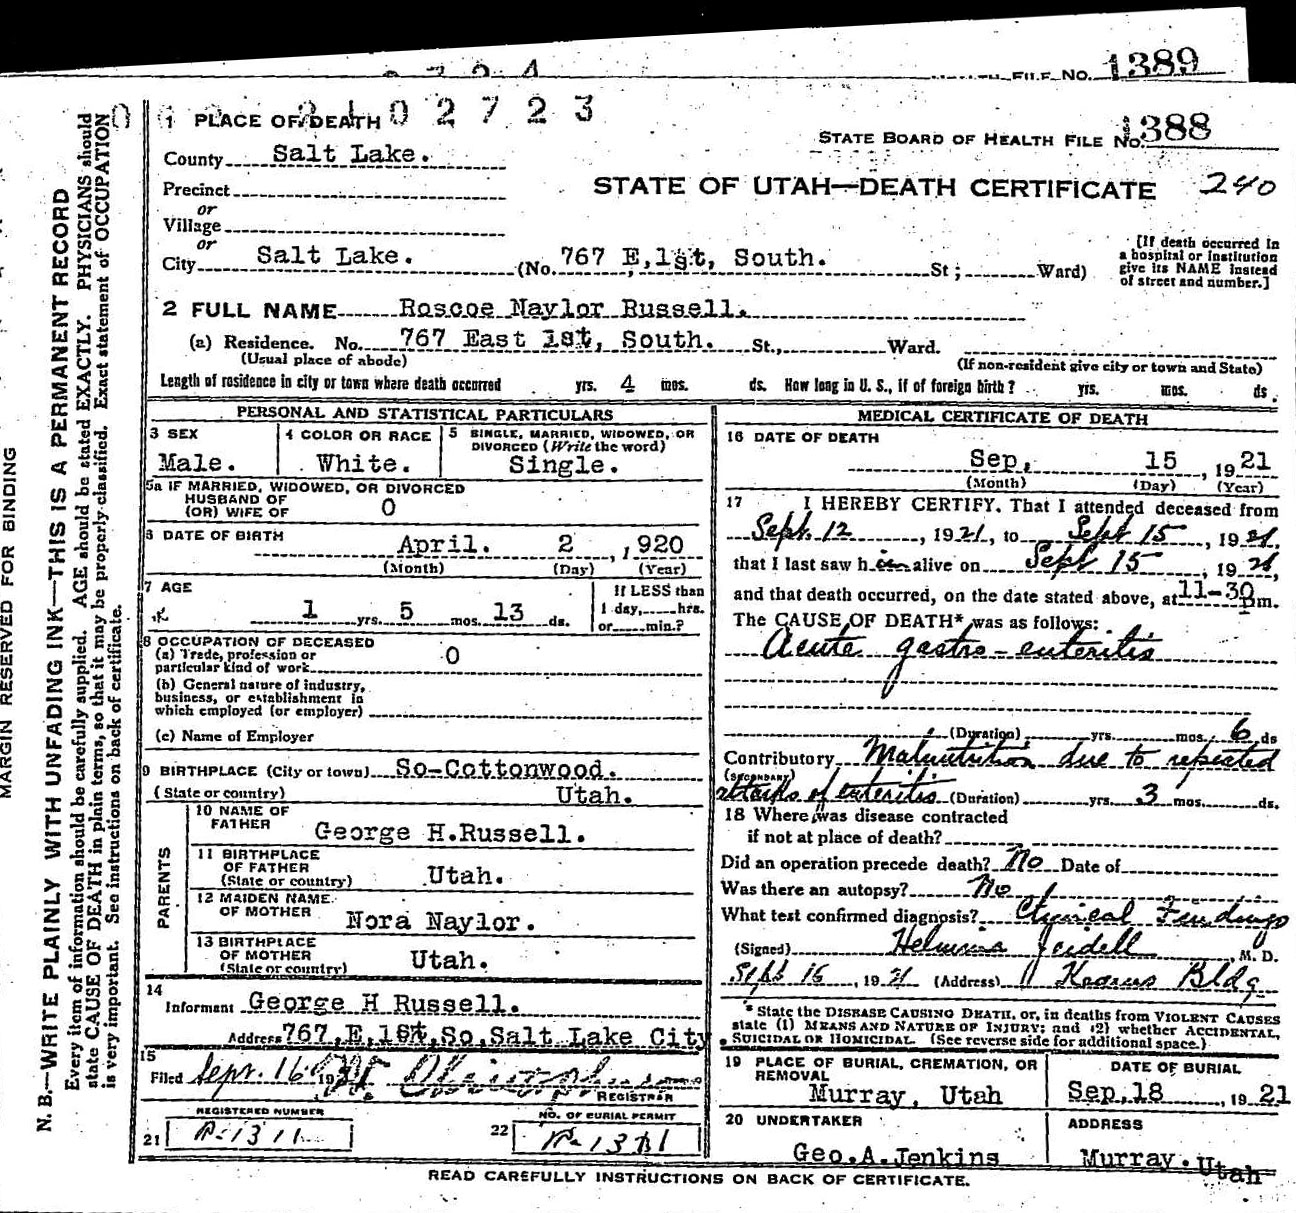 FILE NO. 1389
1 PLACE OF DEATH 0 2 7 2 3
STATE BOARD OF HEALTH FILE No. 1388
County Salt Lake.
STATE OF UTAH—DEATH CERTIFICATE 240
Precinct
or
Village
or
City Salt Lake. (No. 767 E,1st, South. St; Ward)
[If death occurred in
a hospital or institution
give its NAME instead
of street and number.]
2 FULL NAME Roscoe Naylor Russell.
(a) Residence. No. 767 East 1st, South. St., Ward.
(Usual place of abode) (If non-resident give city or town and State)
Length of residence in city or town where death occurred yrs. 4 mos. ds. How long in U. S., if of foreign birth? yrs. mos. ds.
MARGIN RESERVED FOR BINDING
N. B.—WRITE PLAINLY WITH UNFADING INK—THIS IS A PERMANENT RECORD
Every item of information should be carefully supplied. AGE should be stated EXACTLY. PHYSICIANS should
state CAUSE OF DEATH in plain terms, so that it may be properly classified. Exact statement of OCCUPATION
is very important. See instructions on back of certificate.
PERSONAL AND STATISTICAL PARTICULARS
3 SEX
Male.
4 COLOR OR RACE
White.
5 SINGLE, MARRIED, WIDOWED, OR
DIVORCED (Write the word)
Single.
5a IF MARRIED, WIDOWED, OR DIVORCED
HUSBAND OF
(OR) WIFE OF O
6 DATE OF BIRTH
April. 2 , 1920
(Month) (Day) (Year)
7 AGE
1 yrs. 5 mos. 13 ds.
If LESS than
1 day,......hrs.
or......min.?
8 OCCUPATION OF DECEASED
(a) Trade, profession or
particular kind of work O
(b) General nature of industry,
business, or establishment in
which employed (or employer)
(c) Name of Employer
9 BIRTHPLACE (City or town) So-Cottonwood.
(State or country) Utah.
PARENTS
10 NAME OF
FATHER George H.Russell.
11 BIRTHPLACE
OF FATHER
(State or country) Utah.
12 MAIDEN NAME
OF MOTHER Nora Naylor.
13 BIRTHPLACE
OF MOTHER
(State or country) Utah.
14
Informant George H Russell.
Address 767,E,1st,So,Salt Lake City
15
Filed Sept. 16 19
REGISTRAR
REGISTERED NUMBER
21 R-1311
NO. OF BURIAL PERMIT
22
MEDICAL CERTIFICATE OF DEATH
16 DATE OF DEATH
Sep, 15 , 1921
(Month) (Day) (Year)
17 I HEREBY CERTIFY. That I attended deceased from
Sept. 12 , 1921, to Sept 15 , 1921,
that I last saw him alive on Sept 15 , 1921,
and that death occurred, on the date stated above, at 11-30 pm.
The CAUSE OF DEATH* was as follows:
Acute gastro-enteritis
(Duration) yrs. mos. 6 ds
Contributory Malnutrition due to repeated
(SECONDARY)
attacks of enteritis (Duration) yrs 3 mos. ds.
18 Where was disease contracted
if not at place of death?
Did an operation precede death? No Date of
Was there an autopsy? No
What test confirmed diagnosis? Clinical Findings
(Signed) M. D.
Sept 16 , 1921 (Address) Kearns Bldg
* State the DISEASE CAUSING DEATH, or, in deaths from VIOLENT CAUSES
state (1) MEANS AND NATURE OF INJURY; and (2) whether ACCIDENTAL,
SUICIDAL OR HOMICIDAL. (See reverse side for additional space.)
19 PLACE OF BURIAL, CREMATION, OR
REMOVAL
Murray, Utah
DATE OF BURIAL
Sep,18 , 1921
20 UNDERTAKER
Geo.A.Jenkins
ADDRESS
Murray. Utah
READ CAREFULLY INSTRUCTIONS ON BACK OF CERTIFICATE.